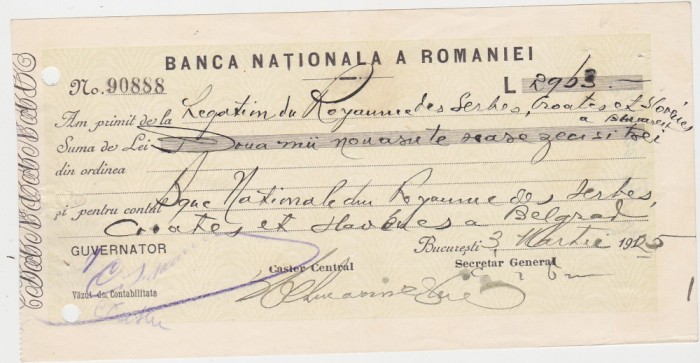 BANCA NAŢIONALA A ROMANIEI
No. 90888
L 2963.—
Am primit de la Legation du Royaume des Serbes, Croates et Slovènes
a Bucarest
Suma de Lei Doua mii noua sute șase zeci si trei
din ordinea
și pentru contul Bque Nationale du Royaume des Serbes,
Croates et Slovènes a Belgrad
GUVERNATOR
București 3 Martie 1925
Casier Central
Secretar General
Văzut de Contabilitate